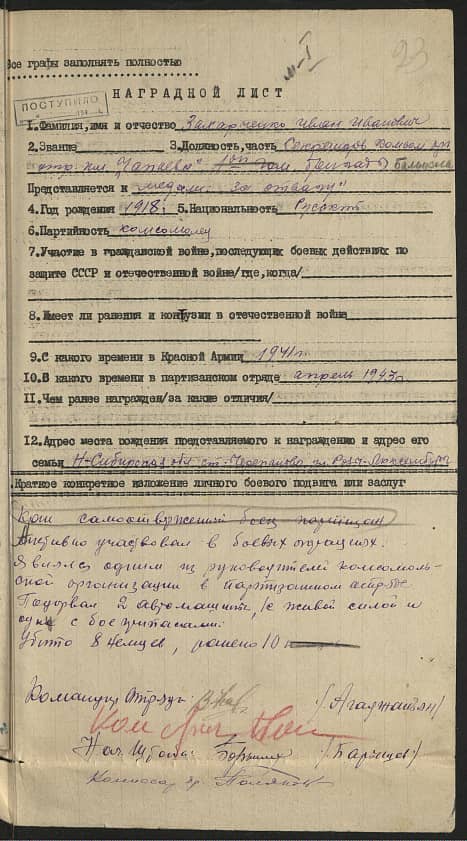 23
Все графы заполнять полностью
НАГРАДНОЙ ЛИСТ
ПОСТУПИЛО
1.Фамилия,имя и отчество Захарченко Иван Иванович
2.Звание 3.Должность,часть Секретарь
отр. им. Чапаева"
Представляется к медали „За отвагу"
4.Год рождения 1918г. 5.Национальность Русский
6.Партийность комсомолец
7.Участие в гражданской войне,последующих боевых действиях по
защите СССР и отечественной войне/где,когда/
8.Имеет ли ранения и контузии в отечественной войне
9.С какого времени в Красной Армии 1941г.
10.В какого времени в партизанском отряде апрель 1943г.
11.Чем ранее награжден/за какие отличия/
12.Адрес места рождения представляемого к награждению и адрес его
семьи Н-Сибирская обл ст. Черепаново ул. Розы-Люксембург
Краткое конкретное изложение личного боевого подвига или заслуг
боец
Активно участвовал в боевых операциях.
Являлся одним из руководителей комсомоль-
ской организации в партизанском отряде.
Подорвал 2 автомашины, /с живой силой и
одну с боеприпасами.
Убито 8 немцев, ранено 10
Командир Отряда /Агаджанян/
Ком
Нач. Штаба /Баринцов/
Комиссар бр.